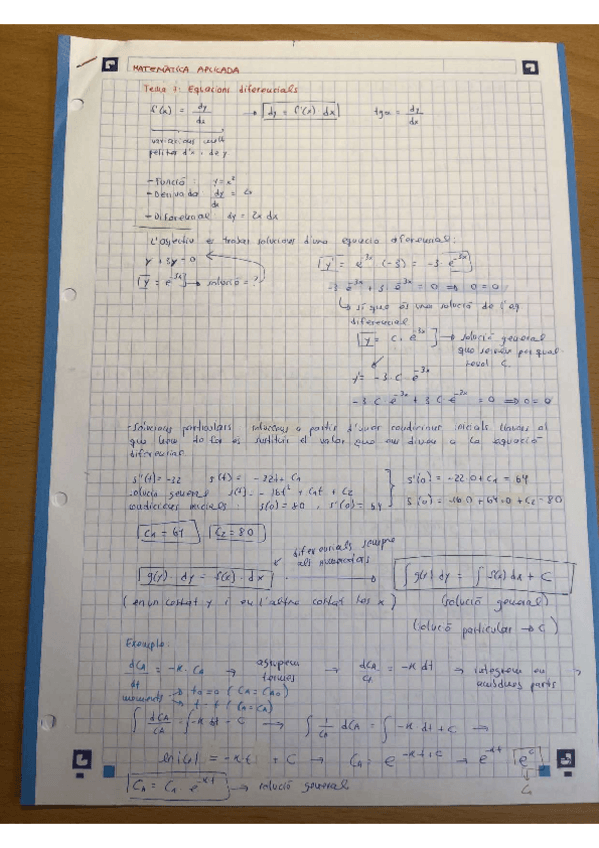 MATEMÀTICA APLICADA
Tema 1: Equacions diferencials
f'(x) = dy/dx → dy = f'(x) dx tgα = dy/dx
variacions molt
petites d'x i de y
- Funció: y = x²
- Derivada dy/dx =
- Diferencial: dy = 2x dx
L'objectiu és trobar solucions d'una equació diferencial:
y' + 3y = 0
y = e^-3x → solució = ?
y' = e^-3x · (-3) = -3 · e^-3x
-3 e^-3x + 3 · e^-3x = 0 ⇒ 0 = 0
↳ sí que és una solució de l'eq
diferencial
y = C · e^-3x → solució general
que serveix per qual-
sevol C.
y' = -3 · C · e^-3x
-3 C e^-3x + 3 C · e^-3x = 0 ⇒ 0 = 0
- Solucions particulars: solucions a partir d'unes condicions inicials llavors el
que hem de fer és substituir el valor que ens diuen a la equació
diferencial.
s''(t) = -32 s'(t) = -32t + C1
solució general s(t) = -16t² + C1t + C2
condicions inicials: s(0) = 80, s'(0) = 64
s'(0) = -32·0 + C1 = 64
s(0) = -16·0 + 64·0 + C2 = 80
C1 = 64 C2 = 80
diferencials sempre
als numeradors
g(y) · dy = f(x) · dx → ∫ g(y) dy = ∫ f(x) dx + C
(en un costat y i en l'altre costat les x) (solució general)
(solució particular → C)
Exemple:
dCA/dt = -k · CA → agrupem termes → dCA/CA = -k dt → integrem en ambdues parts →
moments → t0 = 0 (CA = CA0)
→ t = t (CA = CA)
∫ dCA/CA = ∫ -k dt + C → ∫ 1/CA dCA = ∫ -k · dt + C →
ln|CA| = -k·t + C → CA = e^-kt+C → e^-kt · e^C
CA = C1 · e^-kt → solució general